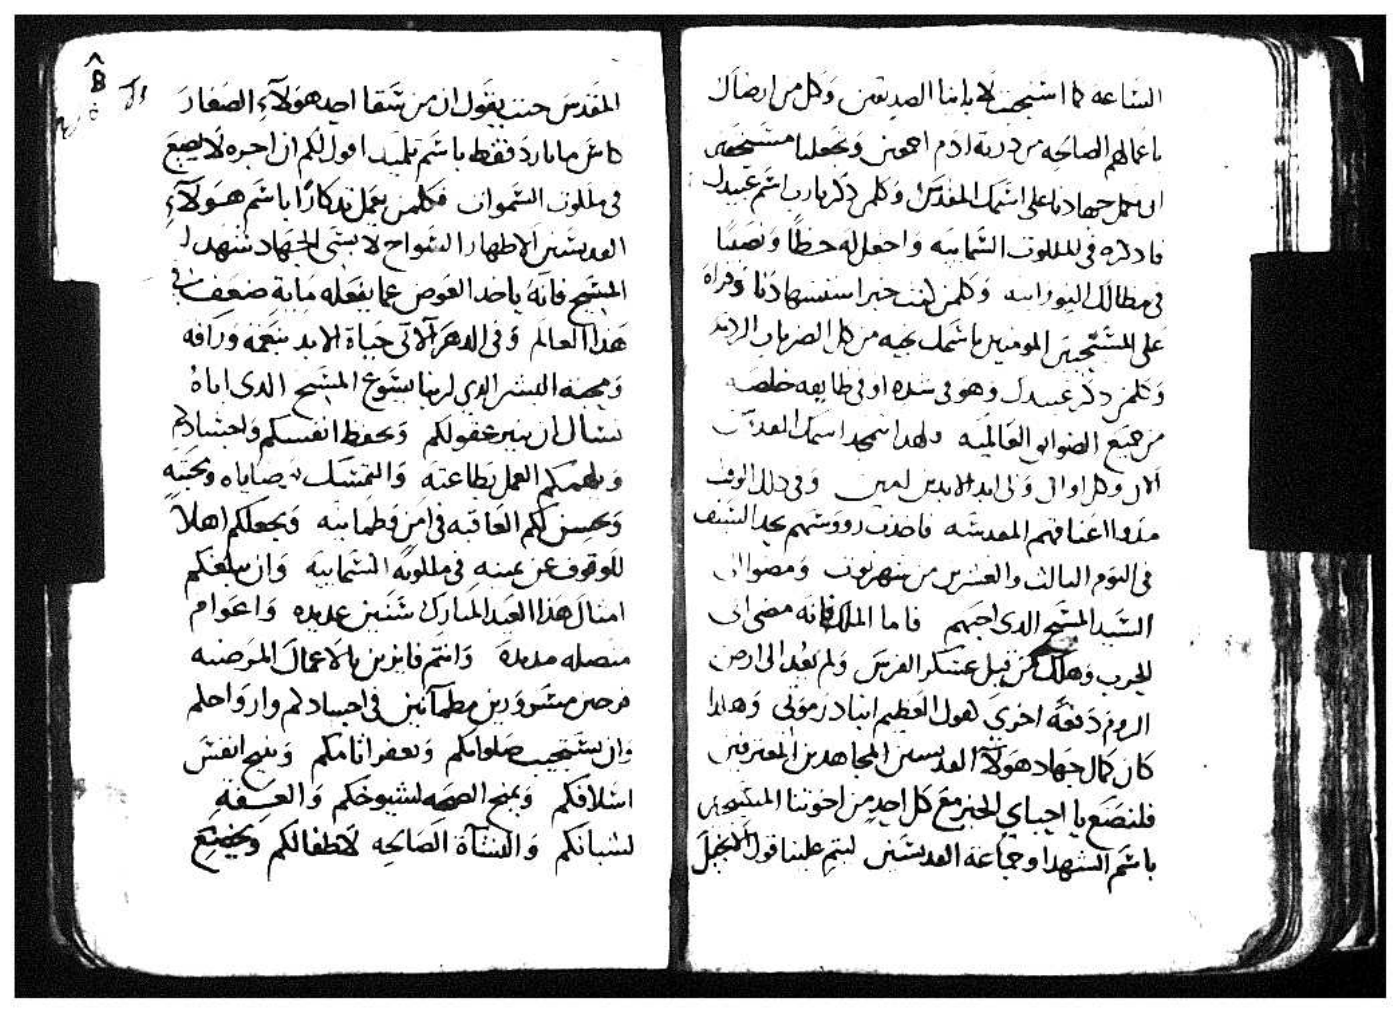 الساعه كما استجبت لاباينا الصديقين وكل من ارضاك
باعمالهم الصالحه من ذرية ادم اجمعين وتجعلنا مستحقين
ان نكمل جهادنا على اسمك المقدس وكلمن ذكر يارب اسم عبيدك
فادكره في ملكوت السمايه واجعل له حظا ونصيبا
في مظالك النورانيه وكلمن كتب خبر استشهادنا وقراه
على المسيحيين المومنين باسمك نجيه من كل الضربات
وكلمن ذكر عبيدك وهو في شده او في ضايقه خلصه
من جميع الضوايق العالميه ولهدا نمجد اسمك القدوس
الان وكل اوان والى ابد الابدين امين وفي دلك الوقت
مدوا اعناقهم المقدسه فاخذت رووسهم بحد السيف
في اليوم التالت والعشرين من شهر توت ومضوا الى
السيد المسيح الدي احبهم فاما الملك فانه مضى الى
الحرب وهلك من قبل عسكر الفرس ولم يعد الى ارض
الروم دفعة اخرى كقول العظيم انبا وهكدا
كان كمال جهاد هولاء القديسين المجاهدين المعترفين
فلنصنع يا احباي الخير مع كل احد من اخوتنا المسيحيين
باسم الشهدا وجماعة القديسين ليتم علينا قول الانجيل
المقدس حيت يقول ان من سقا احد هولاء الصغار
كاس ما بارد فقط باسم تلميد اقول لكم ان اجره لا يضيع
في ملكوت السموات فكلمن يعمل تدكارا باسم هولاء
القديسين الاطهار السواح لابسى الجهاد شهدا
المسيح فانه ياخد العوض عما يفعله ماية ضعف في
هدا العالم وفي الدهر الاتى حياة الابد بنعمه ورافه
ومحبه البشر الدي لربنا يسوع المسيح الدى اياه
نسال ان ينير عقولكم ويحفظ انفسكم واجسادكم
ويلهمكم العمل بطاعته والتمسك بوصاياه ومحبته
ويحسن لكم العاقبه في امن وطمانينه ويجعلكم اهلا
للوقوف عن يمينه في ملكوته السماييه وان يبلغكم
امتال هدا العيد المبارك سنين عديده واعوام
متصله مديدة وانتم فايزين بالاعمال المرضيه
فرحين مسرورين مطمانين في اجسادكم وارواحكم
وان يستجيب صلواتكم ويغفر اثامكم وينيح انفس
اسلافكم ويمنح الصحه لشيوخكم والعفة
لشبانكم والنشاة الصالحه لاطفالكم